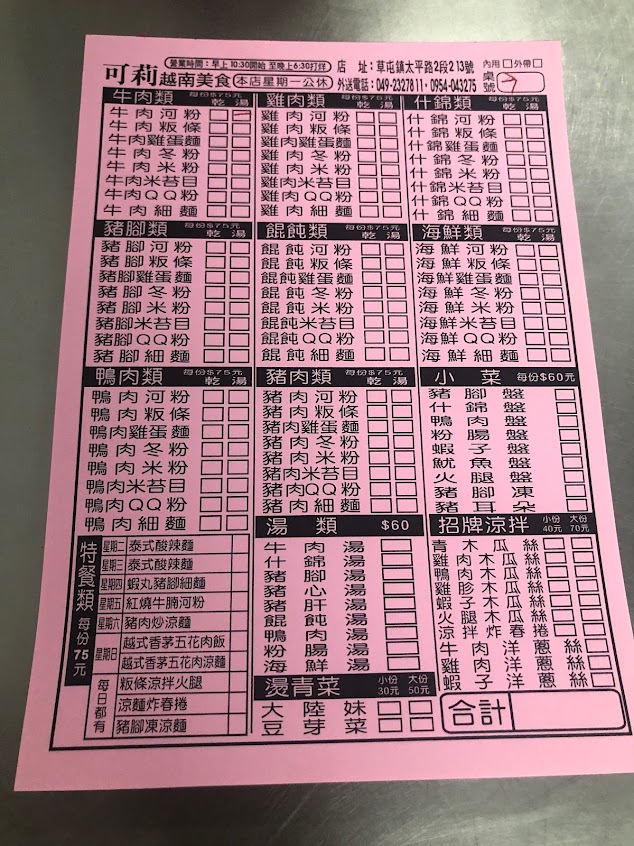 可莉越南美食
營業時間:早上10:30開始 至晚上6:30打烊
本店星期一公休
店 址:草屯鎮太平路2段213號
外送電話:049-2327811・0954-043275
內用 外帶
桌號 7
牛肉類 每份$75元 乾 湯
牛肉河粉
牛肉粄條
牛肉雞蛋麵
牛肉冬粉
牛肉米粉
牛肉米苔目
牛肉QQ粉
牛肉細麵
雞肉類 每份$75元 乾 湯
雞肉河粉
雞肉粄條
雞肉雞蛋麵
雞肉冬粉
雞肉米粉
雞肉米苔目
雞肉QQ粉
雞肉細麵
什錦類 每份$75元 乾 湯
什錦河粉
什錦粄條
什錦雞蛋麵
什錦冬粉
什錦米粉
什錦米苔目
什錦QQ粉
什錦細麵
豬腳類 每份$75元 乾 湯
豬腳河粉
豬腳粄條
豬腳雞蛋麵
豬腳冬粉
豬腳米粉
豬腳米苔目
豬腳QQ粉
豬腳細麵
餛飩類 每份$75元 乾 湯
餛飩河粉
餛飩粄條
餛飩雞蛋麵
餛飩冬粉
餛飩米粉
餛飩米苔目
餛飩QQ粉
餛飩細麵
海鮮類 每份$75元 乾 湯
海鮮河粉
海鮮粄條
海鮮雞蛋麵
海鮮冬粉
海鮮米粉
海鮮米苔目
海鮮QQ粉
海鮮細麵
鴨肉類 每份$75元 乾 湯
鴨肉河粉
鴨肉粄條
鴨肉雞蛋麵
鴨肉冬粉
鴨肉米粉
鴨肉米苔目
鴨肉QQ粉
鴨肉細麵
豬肉類 每份$75元 乾 湯
豬肉河粉
豬肉粄條
豬肉雞蛋麵
豬肉冬粉
豬肉米粉
豬肉米苔目
豬肉QQ粉
豬肉細麵
小菜 每份$60元
豬腳盤
什錦盤
鴨肉盤
粉腸盤
蝦子盤
魷魚盤
火腿盤
豬腳凍
豬耳朵
特餐類 每份75元
星期二 泰式酸辣麵
星期三 泰式酸辣麵
星期四 蝦丸豬腳細麵
星期五 紅燒牛腩河粉
星期六 豬肉炒涼麵
星期日 越式香茅五花肉飯
越式香茅五花肉涼麵
每日都有 粄條涼拌火腿
涼麵炸春捲
豬腳凍涼麵
湯類 $60
牛肉湯
什錦湯
豬腳湯
豬心湯
豬肝湯
餛飩湯
鴨肉湯
粉腸湯
海鮮湯
燙青菜 小份30元 大份50元
大陸妹
豆芽菜
招牌涼拌 小份40元 大份70元
青木瓜絲
雞肉木瓜絲
鴨肉木瓜絲
雞胗木瓜絲
蝦子木瓜絲
火腿木瓜絲
涼拌炸春捲
牛肉洋蔥絲
雞肉洋蔥絲
蝦子洋蔥絲
合計